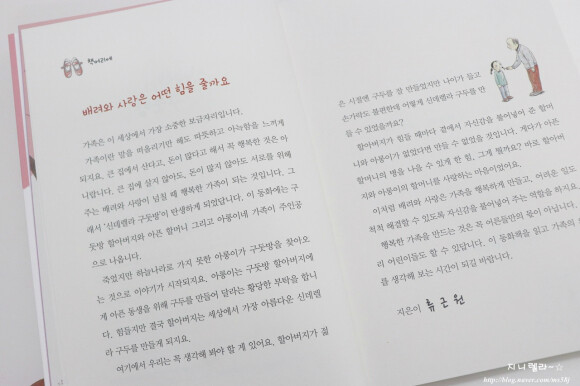 책머리에
배려와 사랑은 어떤 힘을 줄까요
가족은 이 세상에서 가장 소중한 보금자리입니다.
가족이란 말을 떠올리기만 해도 따뜻하고 아늑함을 느끼게
되지요. 큰 집에서 산다고, 돈이 많다고 해서 꼭 행복한 것은 아
니랍니다. 큰 집에 살지 않아도, 돈이 많지 않아도 서로를 위해
주는 배려와 사랑이 넘칠 때 행복한 가족이 되는 것입니다. 그
래서 '신데렐라 구둣방'이 탄생하게 되었답니다. 이 동화에는 구
둣방 할아버지와 아픈 할머니 그리고 아롱이네 가족이 주인공
으로 나옵니다.
죽었지만 하늘나라로 가지 못한 아롱이가 구둣방을 찾아오
는 것으로 이야기가 시작되지요. 아롱이는 구둣방 할아버지에
게 아픈 동생을 위해 구두를 만들어 달라는 황당한 부탁을 합니
다. 힘들지만 결국 할아버지는 세상에서 가장 아름다운 신데렐
라 구두를 만들게 되지요.
여기에서 우리는 꼭 생각해 봐야 할 게 있어요. 할아버지가 젊
은 시절엔 구두를 잘 만들었지만 나이가 들고
손가락도 불편한데 어떻게 신데렐라 구두를 만
들 수 있었을까요?
할아버지가 힘들 때마다 곁에서 자신감을 불어넣어 준 할머
니와 아롱이가 없었다면 만들 수 없었을 것입니다. 게다가 아픈
할머니의 병을 나을 수 있게 한 힘, 그게 뭘까요? 바로 할아버
지와 아롱이의 할머니를 사랑하는 마음이었어요.
이처럼 배려와 사랑은 가족을 행복하게 만들고, 어려운 일도
척척 해결할 수 있도록 자신감을 불어넣어 주는 역할을 하지요.
행복한 가족을 만드는 것은 꼭 어른들만의 몫이 아닙니다.
리 어린이들도 할 수 있답니다. 이 동화책을 읽고 가족의
를 생각해 보는 시간이 되길 바랍니다.
지은이 류근원
지니렐라~☆